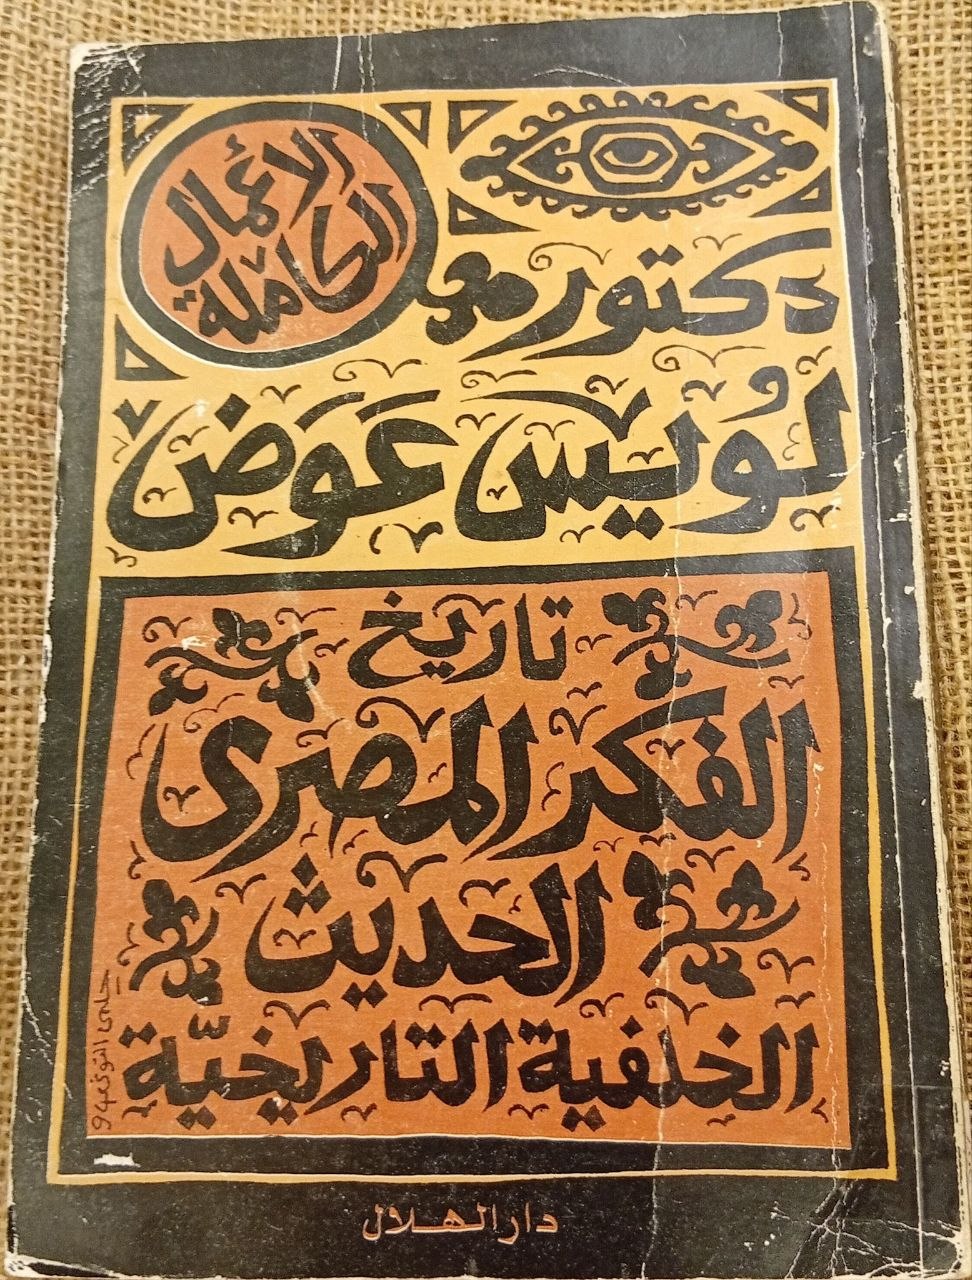 الأعمال
الكاملة
دكتور
لُويس عَوَض
تاريخ
الفكر المصرى
الحديث
الخلفية التاريخيّة
حلمى التونى
دار الهلال